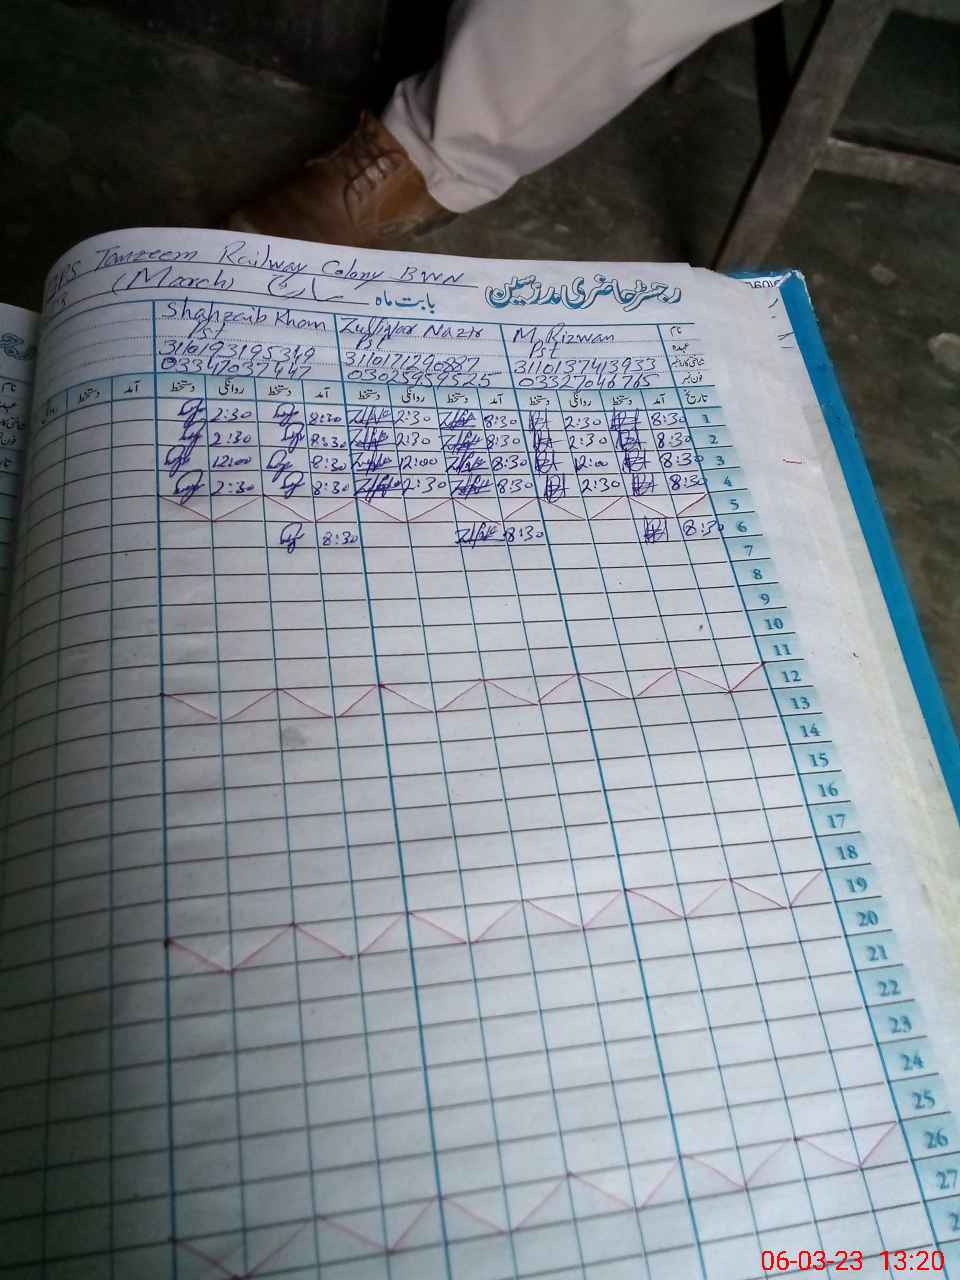 Tanzeem Railway Colony BWN
رجسٹر حاضری مدرسین
بابت ماہ مارچ (March)
نام M. Rizwan Zulfiqar Nazir Shahzaib Khan
عہدہ Pst Pst Pst
شناختی کارڈ نمبر 3110137413933 3110171290887 3110193195349
فون نمبر 03327046765 03025959525 03347037447
تاریخ آمد دستخط روانگی دستخط آمد دستخط روانگی دستخط آمد دستخط روانگی دستخط آمد دستخط
1 8:30 2:30 8:30 2:30 8:30 2:30
2 8:30 2:30 8:30 2:30 8:30 2:30
3 8:30 12:00 8:30 12:00 8:30 12:00
4 8:30 2:30 8:30 2:30 8:30 2:30
5
6 8:30 8:30 8:30
7
8
9
10
11
12
13
14
15
16
17
18
19
20
21
22
23
24
25
26
27
06-03-23 13:20